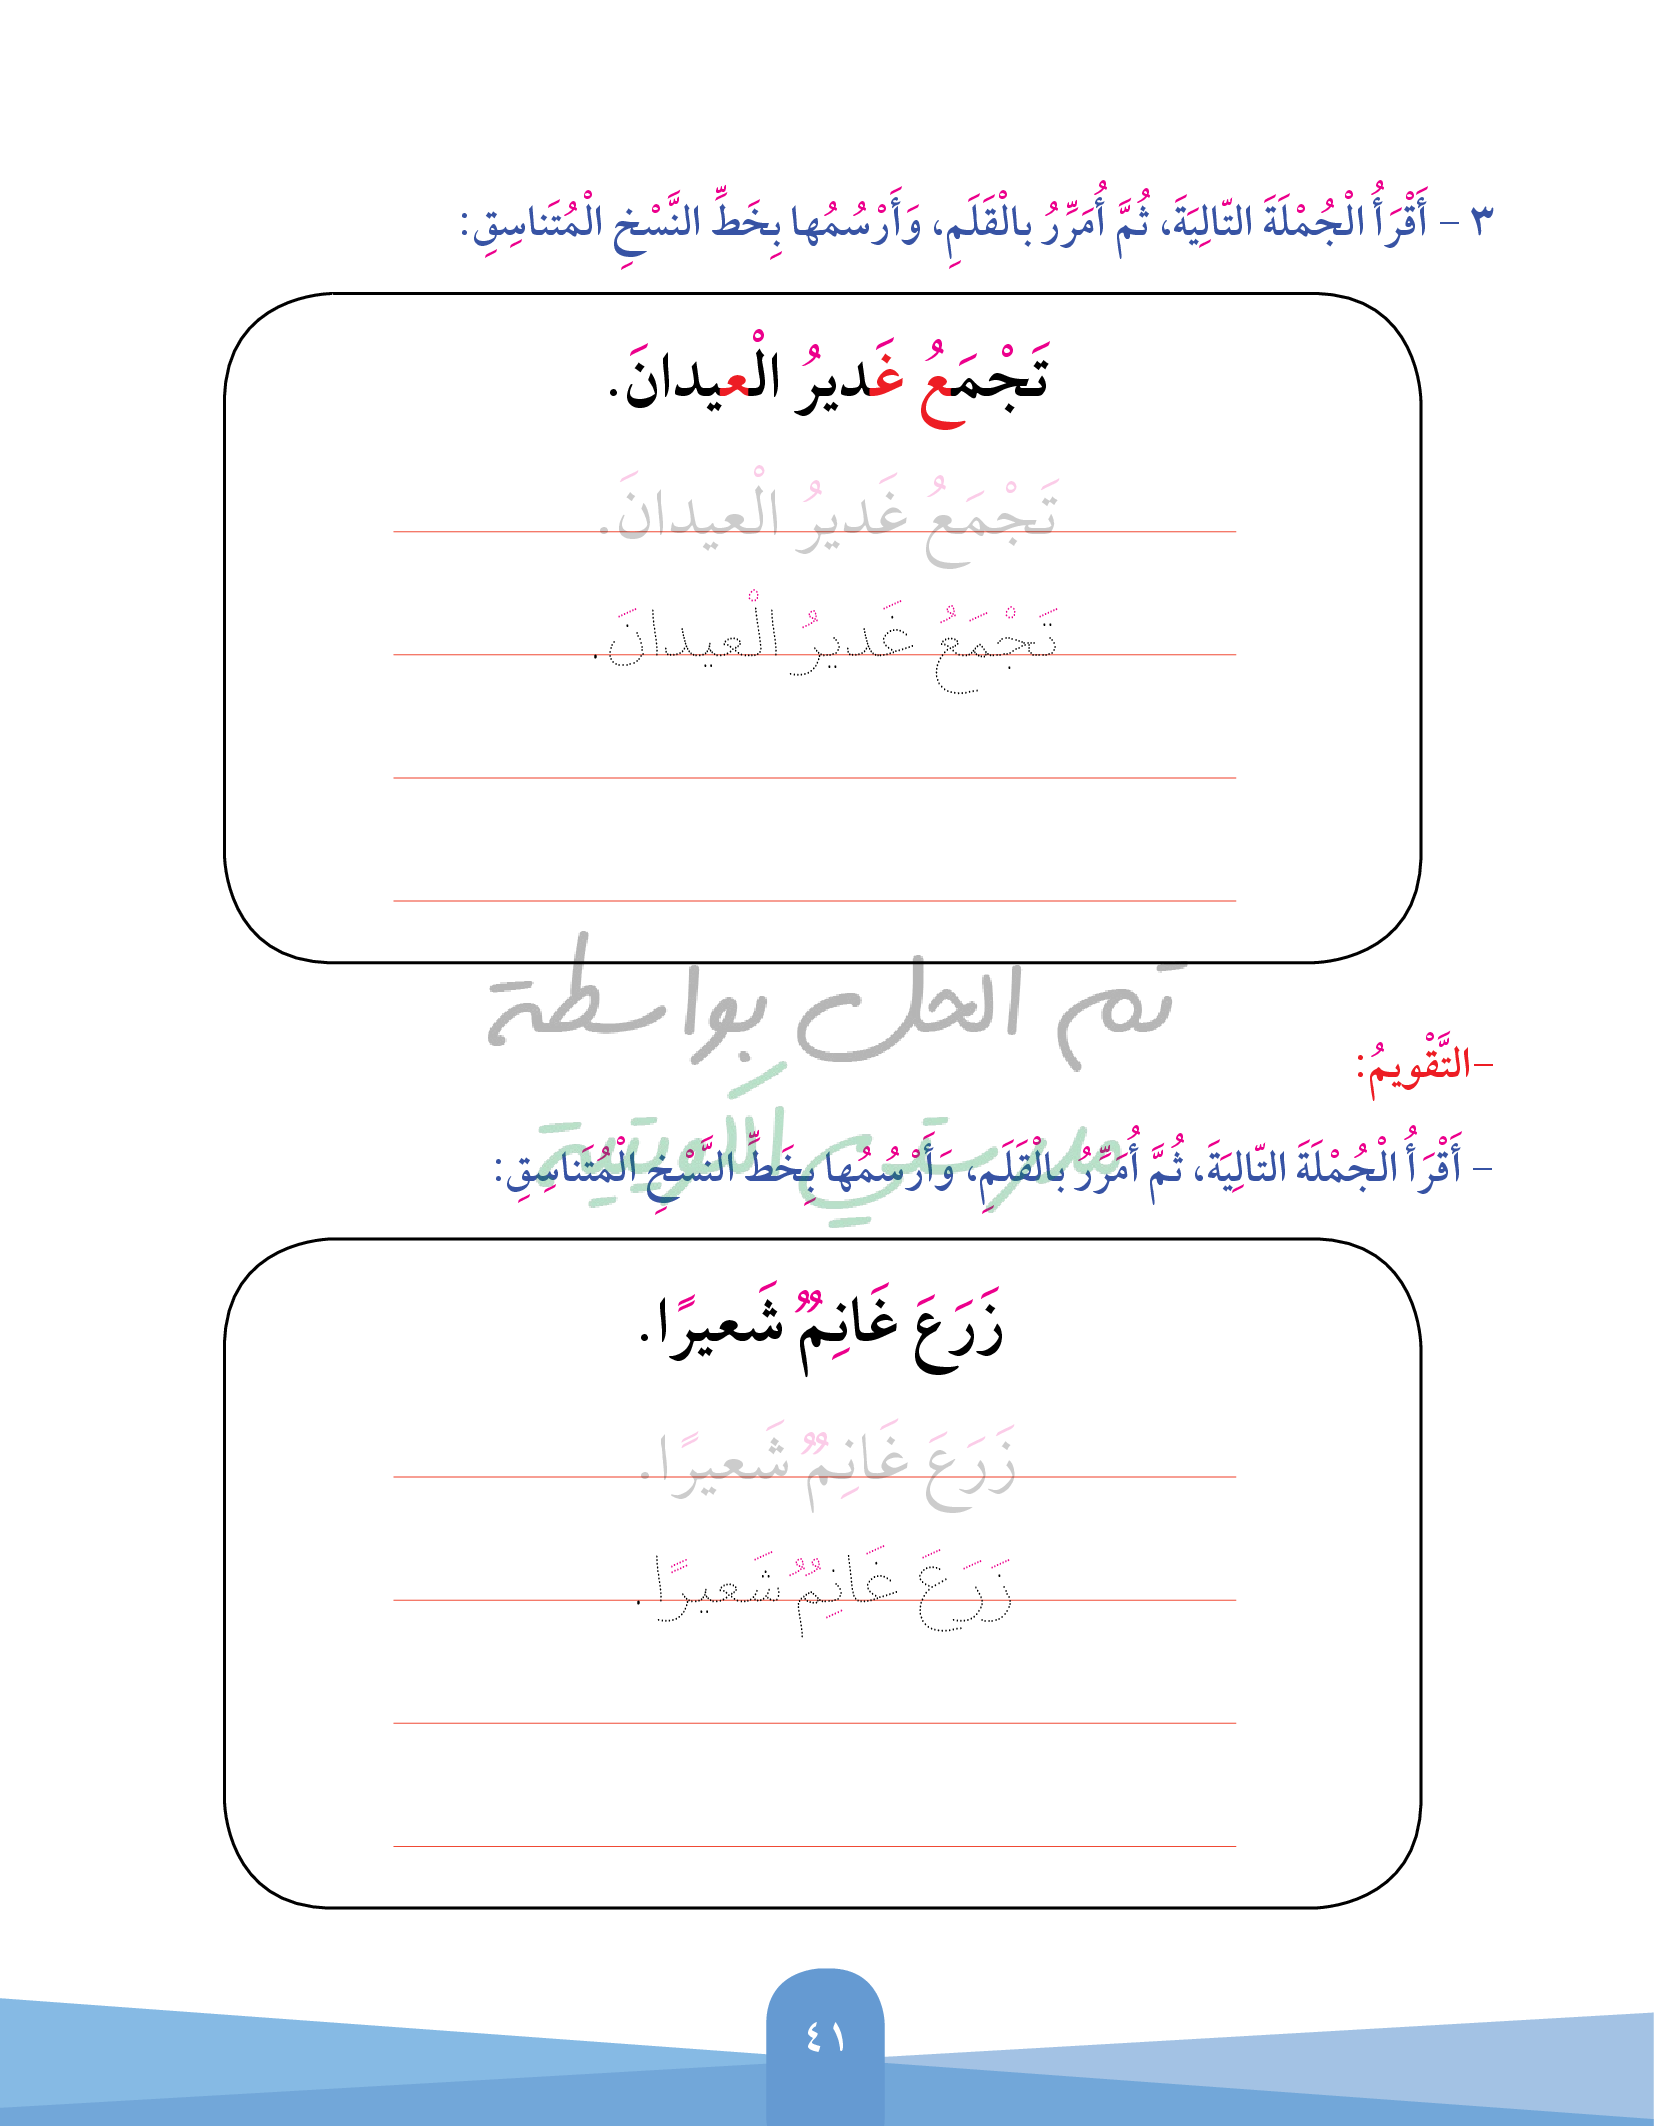 ٣ - أَقْرَأُ الْجُمْلَةَ التّالِيَةَ، ثُمَّ أُمَرِّرُ بالْقَلَمِ، وَأَرْسُمُها بِخَطِّ النَّسْخِ الْمُتَناسِقِ:
تَجْمَعُ غَديرُ الْعيدانَ.
تَجْمَعُ غَديرُ الْعيدانَ.
تَجْمَعُ غَديرُ الْعيدانَ.
تم الحل بواسطة
-التَّقْويمُ:
مدرستي الكويتية
- أَقْرَأُ الْجُمْلَةَ التّالِيَةَ، ثُمَّ أُمَرِّرُ بالْقَلَمِ، وَأَرْسُمُها بِخَطِّ النَّسْخِ الْمُتَناسِقِ:
زَرَعَ غَانِمٌ شَعيرًا.
زَرَعَ غَانِمٌ شَعيرًا.
زَرَعَ غَانِمٌ شَعيرًا.
٤١